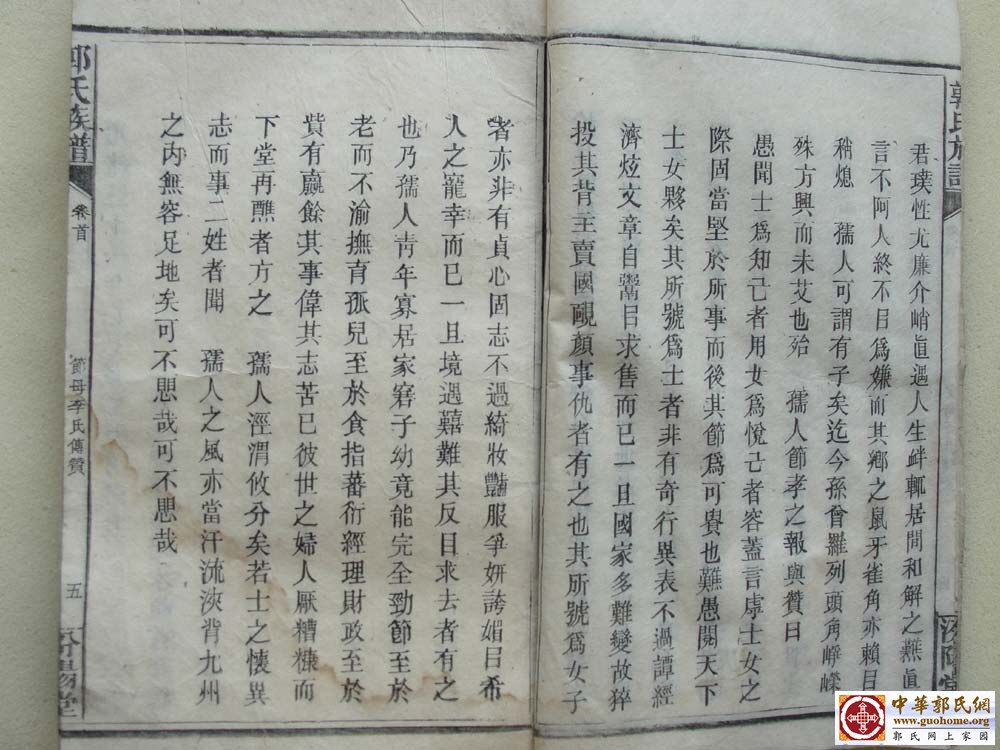 郭氏族譜
君璞性尤廉介峭直遇人生衅輒居間和解之無眞
言不阿人終不㠯爲嫌而其鄉之鼠牙雀角亦賴㠯
稍熄　孺人可謂有子矣迄今孫曾羅列頭角崢嶸
殊方興而未艾也殆　孺人節孝之報與贊曰
愚聞士爲知己者用女爲悅己者容蓋言虖士女之
際固當堅於所事而後其節爲可貴也難愚閱天下
士女夥矣其所號爲士者非有奇行異表不過譚經
濟炫文章自鬻㠯求售而已一旦國家多難變故猝
投其背主賣國靦顏事仇者有之也其所號爲女子
者亦非有貞心固志不過綺妝豔服爭妍誇媚㠯希
人之寵幸而已一旦境遇囏難其反目求去者有之
也乃孺人靑年寡居家窘子幼竟能完全勁節至於
老而不渝撫育孤兒至於食指蕃衍經理財政至於
貲有贏餘其事偉其志苦已彼世之婦人厭糟糠而
下堂再醮者方之　孺人涇渭攸分矣若士之懷異
志而事二姓者聞　孺人之風亦當汗流浹背九州
之內無容足地矣可不愳哉可不愳哉
郭氏族譜
卷首
節母李氏傳贊
五
汾陽堂
中華郭氏網
www.guohome.org
郭氏網上家園